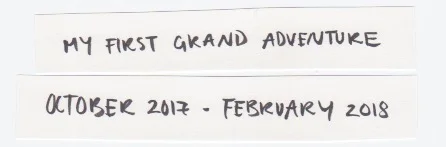 MY FIRST GRAND ADVENTURE
OCTOBER 2017 - FEBRUARY 2018